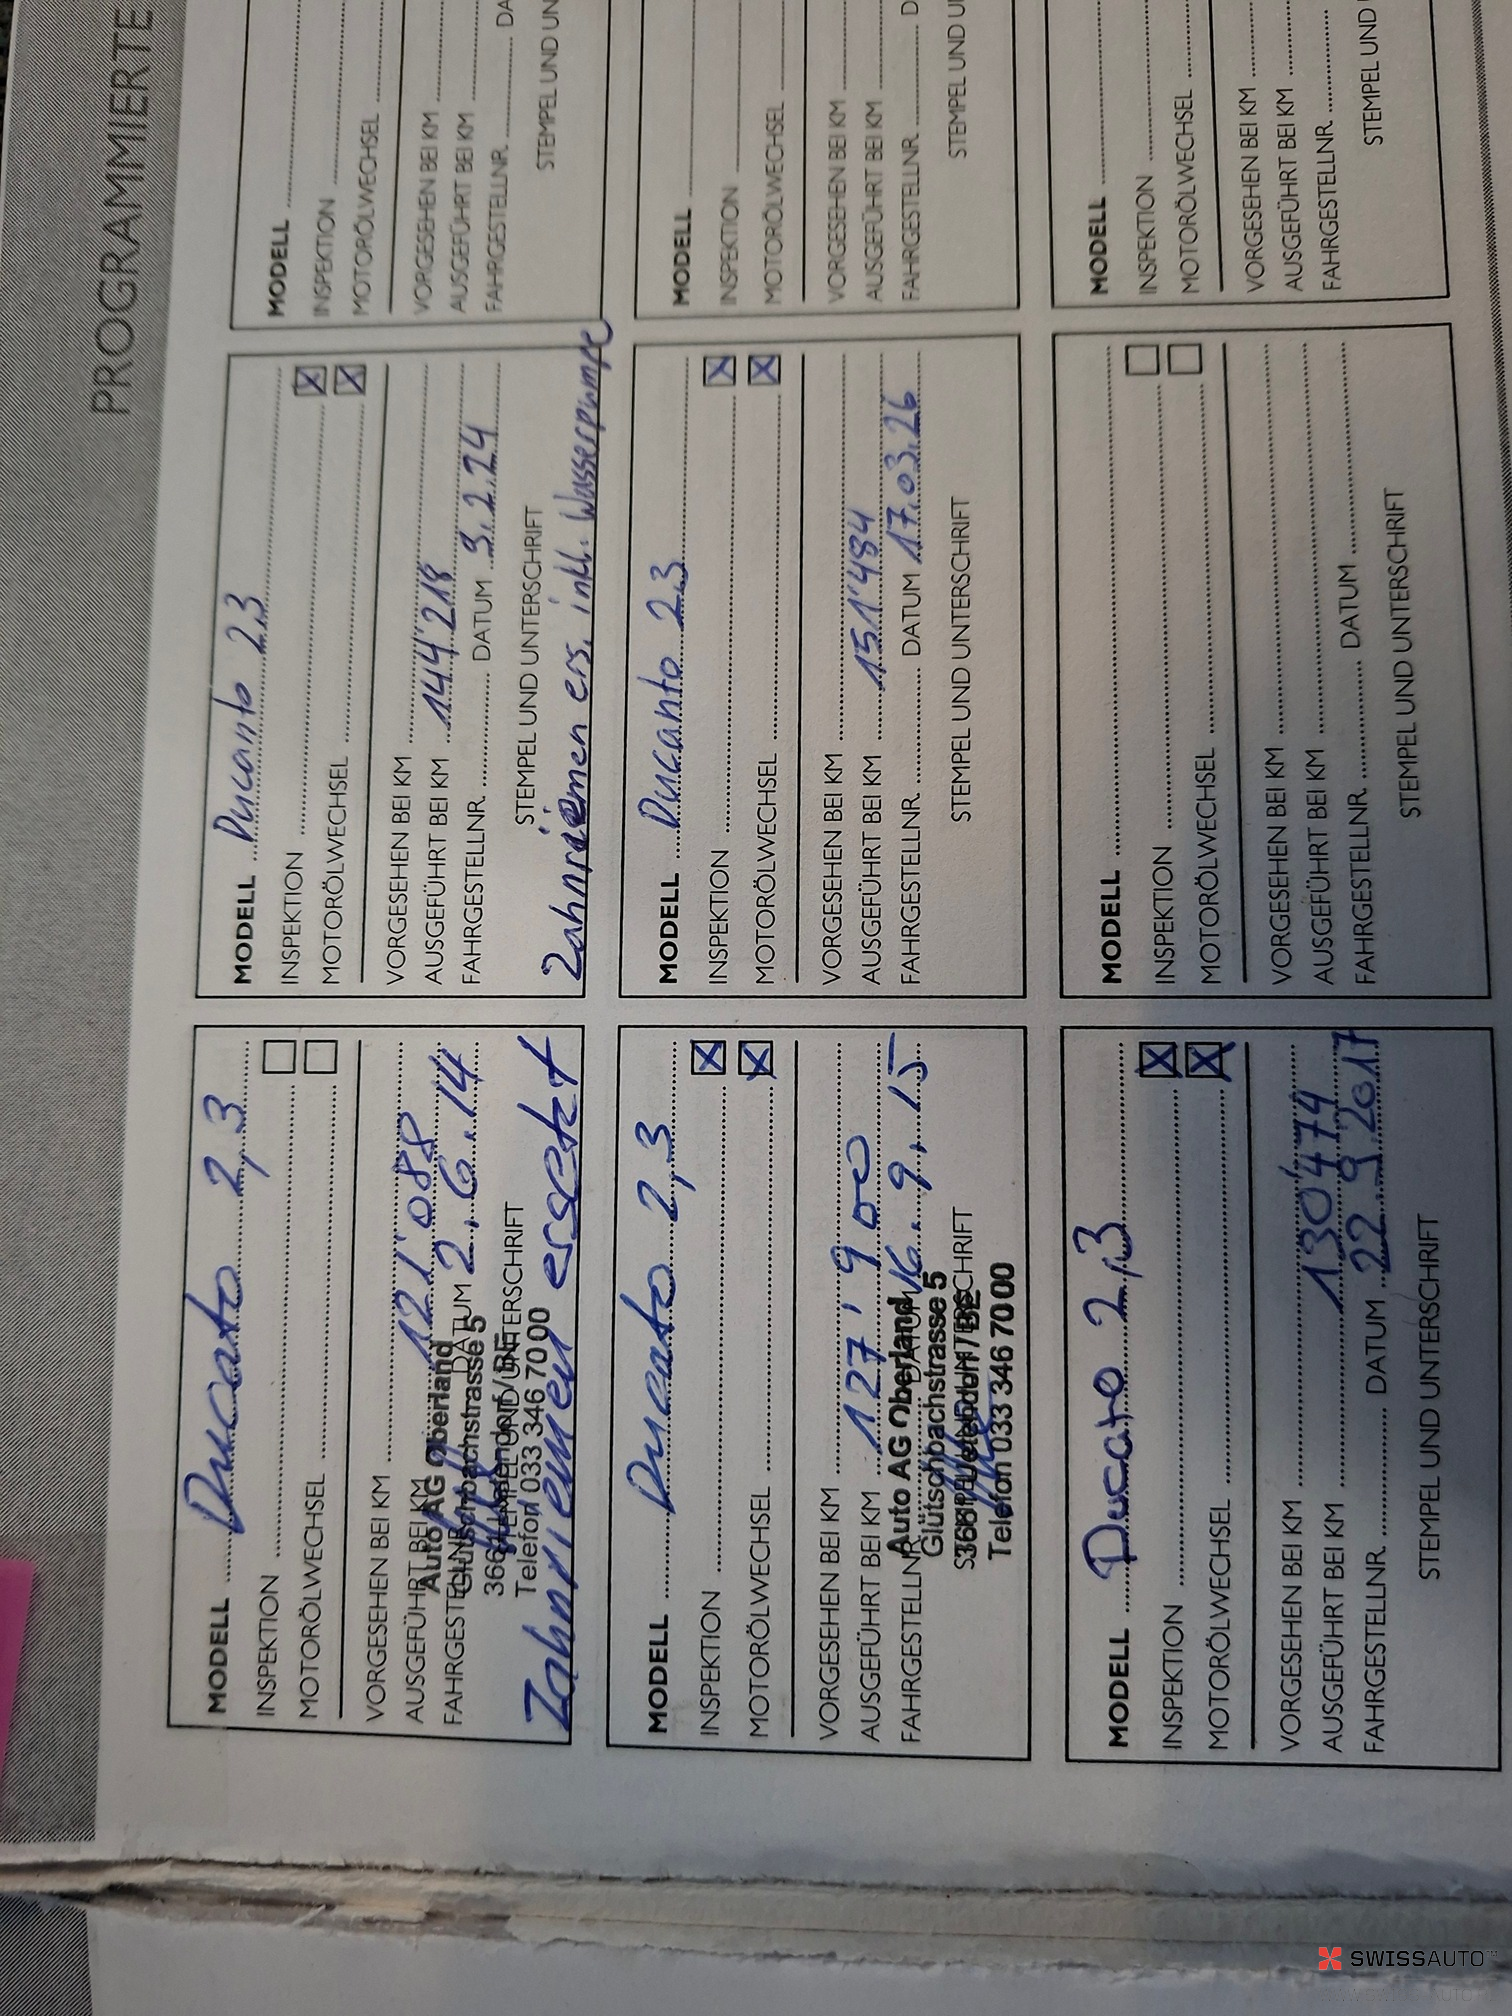 PROGRAMMIERTE
MODELL Ducato 2,3
INSPEKTION
MOTORÖLWECHSEL
VORGESEHEN BEI KM
AUSGEFÜHRT BEI KM 121'088
FAHRGESTELLNR. DATUM 2.6.14
STEMPEL UND UNTERSCHRIFT
Auto AG Oberland
Glütschbachstrasse 5
Telefon 033 346 70 00
Zahnriemen ersetzt
MODELL Ducato 2,3
INSPEKTION X
MOTORÖLWECHSEL X
VORGESEHEN BEI KM
AUSGEFÜHRT BEI KM 127'900
FAHRGESTELLNR. DATUM 16.9.15
STEMPEL UND UNTERSCHRIFT
Auto AG Oberland
Glütschbachstrasse 5
3661 Uetendorf / BE
Telefon 033 346 70 00
MODELL Ducato 2,3
INSPEKTION X
MOTORÖLWECHSEL X
VORGESEHEN BEI KM
AUSGEFÜHRT BEI KM 130'474
FAHRGESTELLNR. DATUM 22.9.2017
STEMPEL UND UNTERSCHRIFT
MODELL Ducanto 2.3
INSPEKTION X
MOTORÖLWECHSEL X
VORGESEHEN BEI KM
AUSGEFÜHRT BEI KM 144'218
FAHRGESTELLNR. DATUM 9.2.24
STEMPEL UND UNTERSCHRIFT
Zahnriemen ers. inkl. Wasserpumpe
MODELL Ducanto 2.3
INSPEKTION X
MOTORÖLWECHSEL X
VORGESEHEN BEI KM
AUSGEFÜHRT BEI KM 151'484
FAHRGESTELLNR. DATUM 17.03.26
STEMPEL UND UNTERSCHRIFT
MODELL
INSPEKTION
MOTORÖLWECHSEL
VORGESEHEN BEI KM
AUSGEFÜHRT BEI KM
FAHRGESTELLNR. DATUM
STEMPEL UND UNTERSCHRIFT
MODELL
INSPEKTION
MOTORÖLWECHSEL
VORGESEHEN BEI KM
AUSGEFÜHRT BEI KM
FAHRGESTELLNR. DA
STEMPEL UND UN
MODELL
INSPEKTION
MOTORÖLWECHSEL
VORGESEHEN BEI KM
AUSGEFÜHRT BEI KM
FAHRGESTELLNR. D
STEMPEL UND U
MODELL
INSPEKTION
MOTORÖLWECHSEL
VORGESEHEN BEI KM
AUSGEFÜHRT BEI KM
FAHRGESTELLNR.
STEMPEL UND
SWISSAUTO